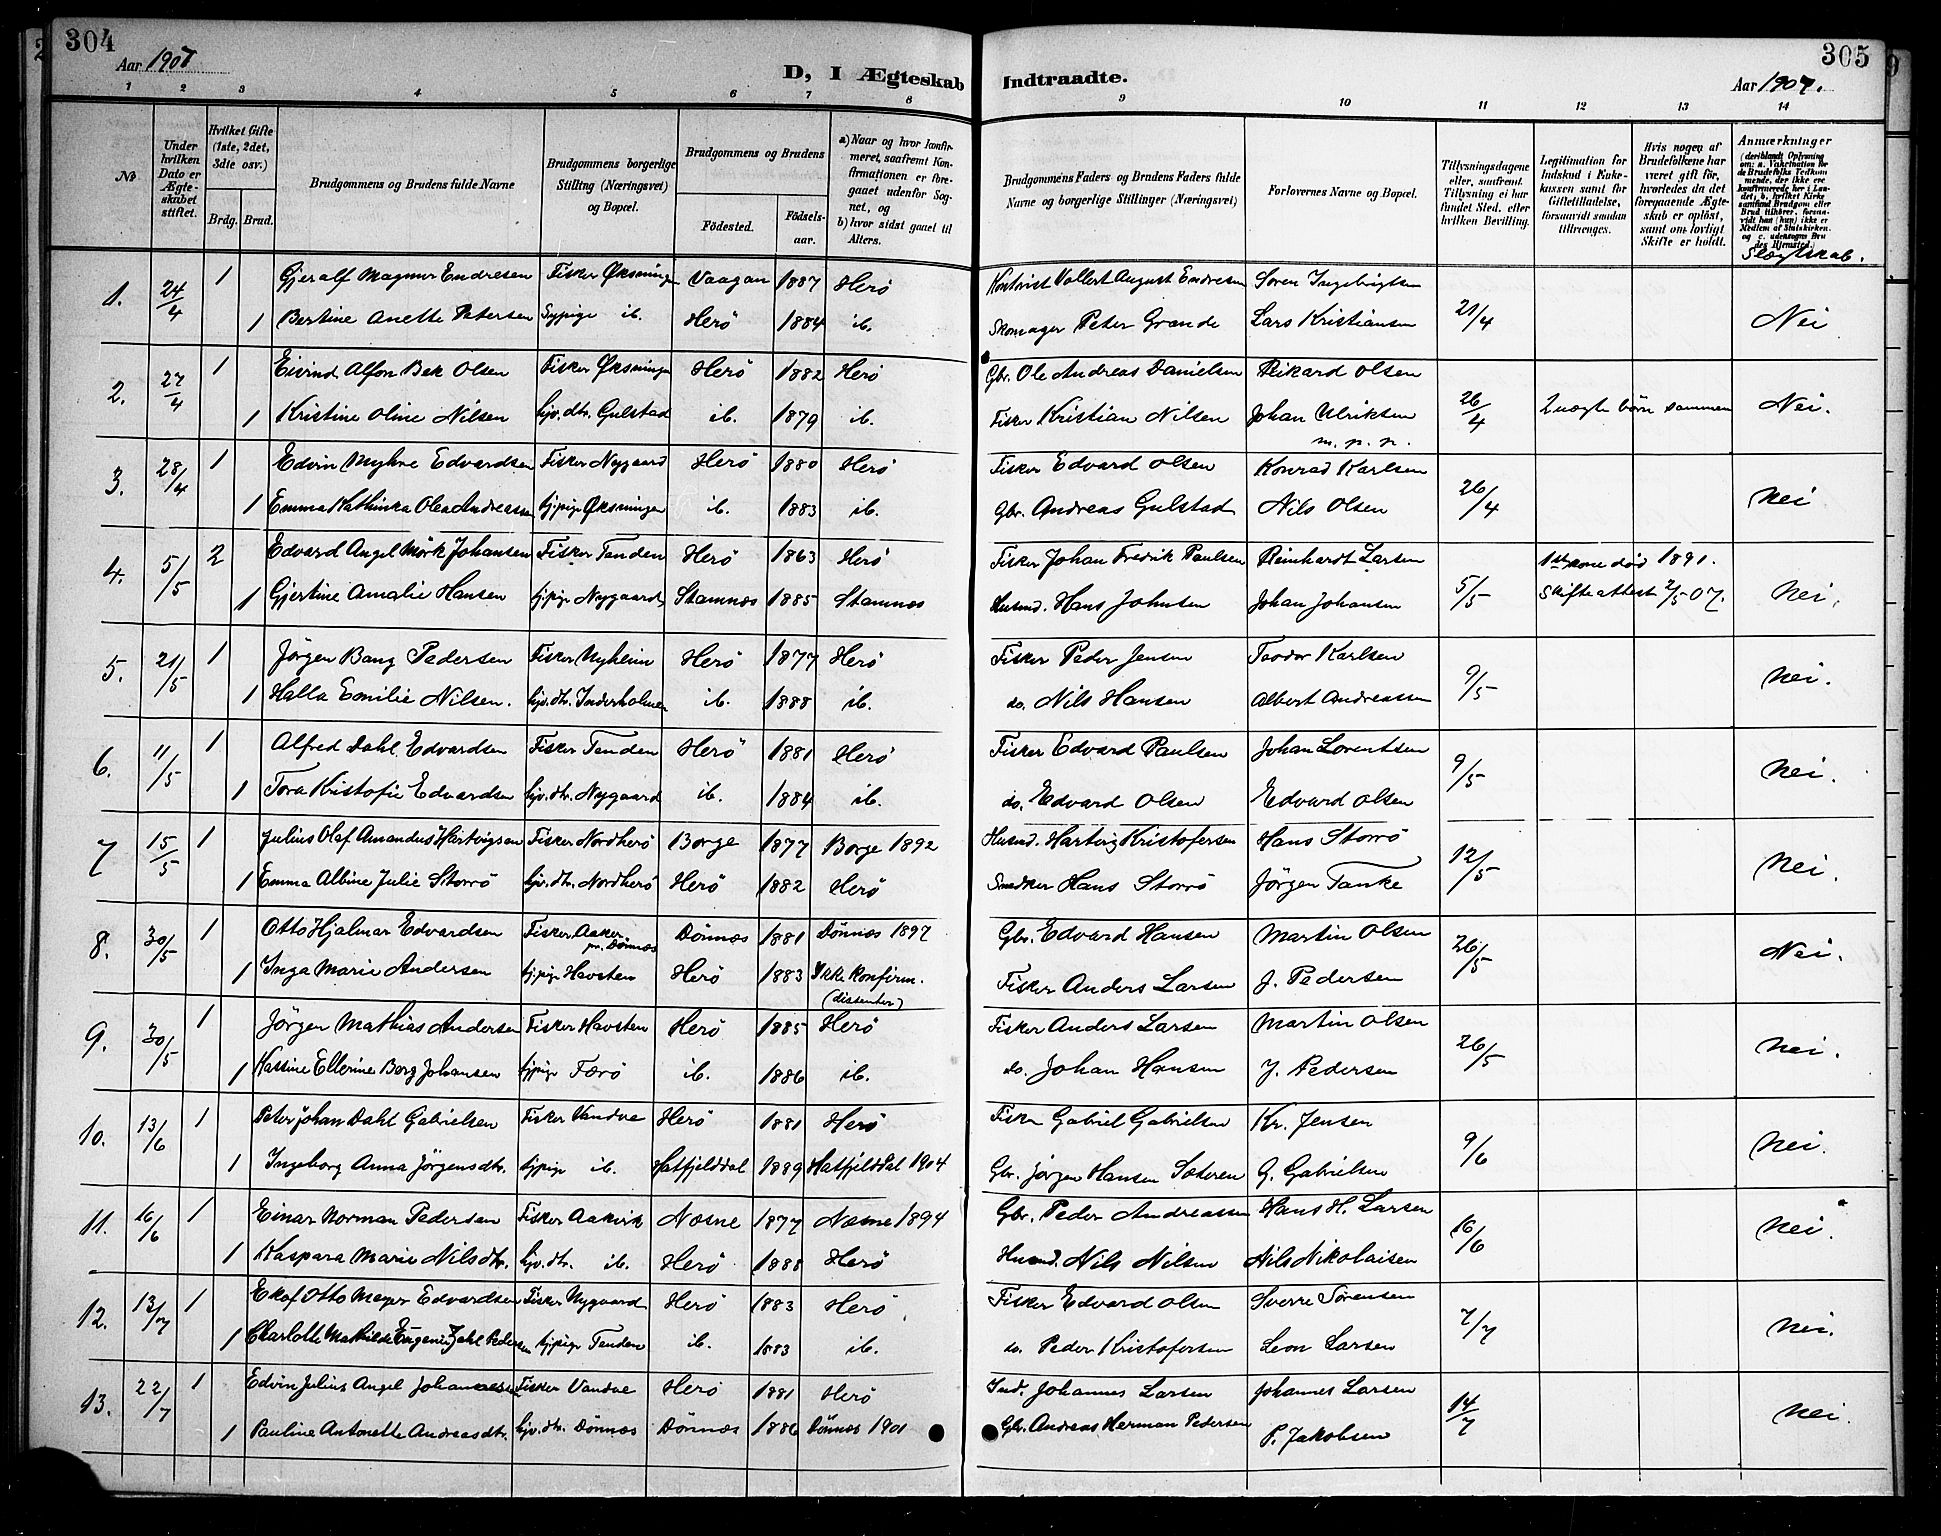 304
Aar 1907
D, I Ægteskab
1 2 3 4 5 6 7 8
No
Under hvilken Dato er Ægteskabet stiftet.
Hvilket Gifte (1ste, 2det, 3dte osv.)
Brdg. Brud.
Brudgommens og Brudens fulde Navne
Brudgommens borgerlige Stilling (Næringsvei) og Bopæl.
Brudgommens og Brudens
Fødested. Fødselsaar.
a) Naar og hvor konfirmeret, saafremt Konfirmationen er foregaaet udenfor Sognet, og
b) hvor sidst gaaet til Alters.
1. 24/4 1 Gjeralf Magnus Endresen Fisker Øksningen Vaagan 1887 Herö
1 Bertine Anette Petersen Sypige ib. Herö 1884 ib.
2. 27/4 1 Eivind Alfon Bek Olsen Fisker Øksningen Herö 1882 Herö
1 Kristine Oline Nilsen hjv. dtr. Gulstad ib. 1879 ib.
3. 28/4 1 Edvin Myhre Edvardsen Fisker Nygaard Herö 1880 Herö
1 Emma Kathinka Olea Andreassen tj.pige Øksningen ib. 1883 ib.
4. 5/5 2 Edvard Angel Mörk Johansen Fisker Tenden Herö 1863 Herö
1 Gjertine Amalie Hansen tj.pige Nygaard Stamnes 1885 Stamnes
5. 21/5 1 Jörgen Bang Pedersen Fisker Nyheim Herö 1877 Herö
1 Halla Emilie Nilsen. hjv. dtr. Inderholmen ib. 1888 ib.
6. 11/5 1 Alfred Dahl Edvardsen Fisker Tenden Herö 1881 Herö
1 Tora Kristofie Edvardsen hjv. dtr. Nygaard ib. 1884 ib.
7 15/5 1 Julius Olaf Amandus Hartvigsen Fisker Nordherö Borge 1877 Borge 1892
1 Emma Albine Julie Storrö hjv. dtr. Nordherö Herö 1882 Herö
8. 30/5 1 Otto Hjalmar Edvardsen Fisker Aaker pr. Dönnæs Dönnæs 1881 Dönnæs 1897
1 Inga Marie Andersen tj.pige Havsten Herö 1883 Ikke konfirm. (dissenter)
9. 30/5 1 Jörgen Mathias Andersen Fisker Havsten Herö 1885 Herö
1 Hassine Ellerine Borg Johansen tj.pige Færö ib. 1886 ib.
10. 13/6 1 Peter Johan Dahl Gabrielsen Fisker Vandve Herö 1881 Herö
1 Ingeborg Anna Jörgensdtr. tj.pige ib. Hatfjelddal 1889 Hatfjelddal 1904
11. 16/6 1 Einar Norman Pedersen Fisker Aakvik Næsne 1877 Næsne 1894
1 Kaspara Marie Nilsdtr. hjv. dtr. ib. Herö 1888 Herö
12. 13/7 1 Ekof Otto Meyer Edvardsen Fisker Nygaard Herö 1883 Herö
1 Charlotte Mathilde Eugenie Zahl Pedersen tj.pige Tenden ib. 1883 ib.
13. 22/7 1 Edvin Julius Angel Johannesen Fisker Vandve Herö 1881 Herö
1 Pauline Antonette Andreasdtr. hjv. dtr. Dönnæs Dönnæs 1886 Dönnæs 1901
305
Indtraadte.
Aar 1907.
9 10 11 12 13 14
Brudgommens Faders og Brudens Faders fulde Navne og borgerlige Stillinger (Næringsvei)
Forlovernes Navne og Bopæl.
Tillysningsdagene eller, saafremt Tillysning ei har fundet Sted, efter hvilken Bevilling.
Legitimation for Indskud i Enkekassen samt for Giftetilladelse, forsaavidt saadan tiltrænges.
Hvis nogen af Brudefolkene har været gift før, hvorledes da det foregaaende Ægteskab er opløst, samt om lovligt Skifte er holdt.
Anmærkninger
(deriblandt Oplysning om: a. Vakcination for de Brudefolks Vedkommende, der ikke ere konfirmerede her i Landet, b. hvilket Kirkesamfund Brudgom eller Brud tilhører, forsaavidt han (hun) ikke er Medlem af Statskirken, og c. udensogns Brudes Hjemsted.)
Slægtskab.
Kontorist Vollert August Endresen Soren Ingebrigtsen
Skomager Peter Grande Lars Kristiansen 21/4 Nei
Gbr. Ole Andreas Danielsen Rikard Olsen
Fisker Kristian Nilsen Johan Ulriksen 26/4 2 uægte börn sammen Nei.
m. p. p.
Fisker Edvard Olsen Konrad Karlsen
Gbr. Andreas Gulstad Nils Olsen 26/4 Nei
Fisker Johan Fredrik Paulsen Reinhardt Larsen 1ste kone död 1891.
Husmd. Hans Johnsen Johan Johansen 5/5 Skifteattest 2/5 07. Nei.
Fisker Peder Jensen Teodor Karlsen
do. Nils Hansen Albert Andreassen 9/5 Nei.
Fisker Edvard Paulsen Johan Lorentsen
do. Edvard Olsen Edvard Olsen 9/5 Nei.
Husmd. Hartvig Kristofersen Hans Storrö
Snedker Hans Storrö Jörgen Tanke 12/5 Nei.
Gbr. Edvard Hansen Martin Olsen
Fisker Anders Larsen J. Pedersen 26/5 Nei.
Fisker Anders Larsen Martin Olsen
do. Johan Hansen J. Pedersen 26/5 Nei.
Fisker Gabriel Gabrielsen Kr. Jensen
Gbr. Jörgen Hansen Sæteren G. Gabrielsen 9/6 Nei.
Gbr. Peder Andreassen Hans H. Larsen
Husmd. Nils Nilsen Nils Nikolaisen 16/6 Nei.
Fisker Edvard Olsen Sverre Sörensen
do. Peder Kristofersen Leon Larsen 7/7 Nei.
Ind. Johannes Larsen Johannes Larsen
Gbr. Andreas Herman Pedersen P. Jakobsen 14/7 Nei.